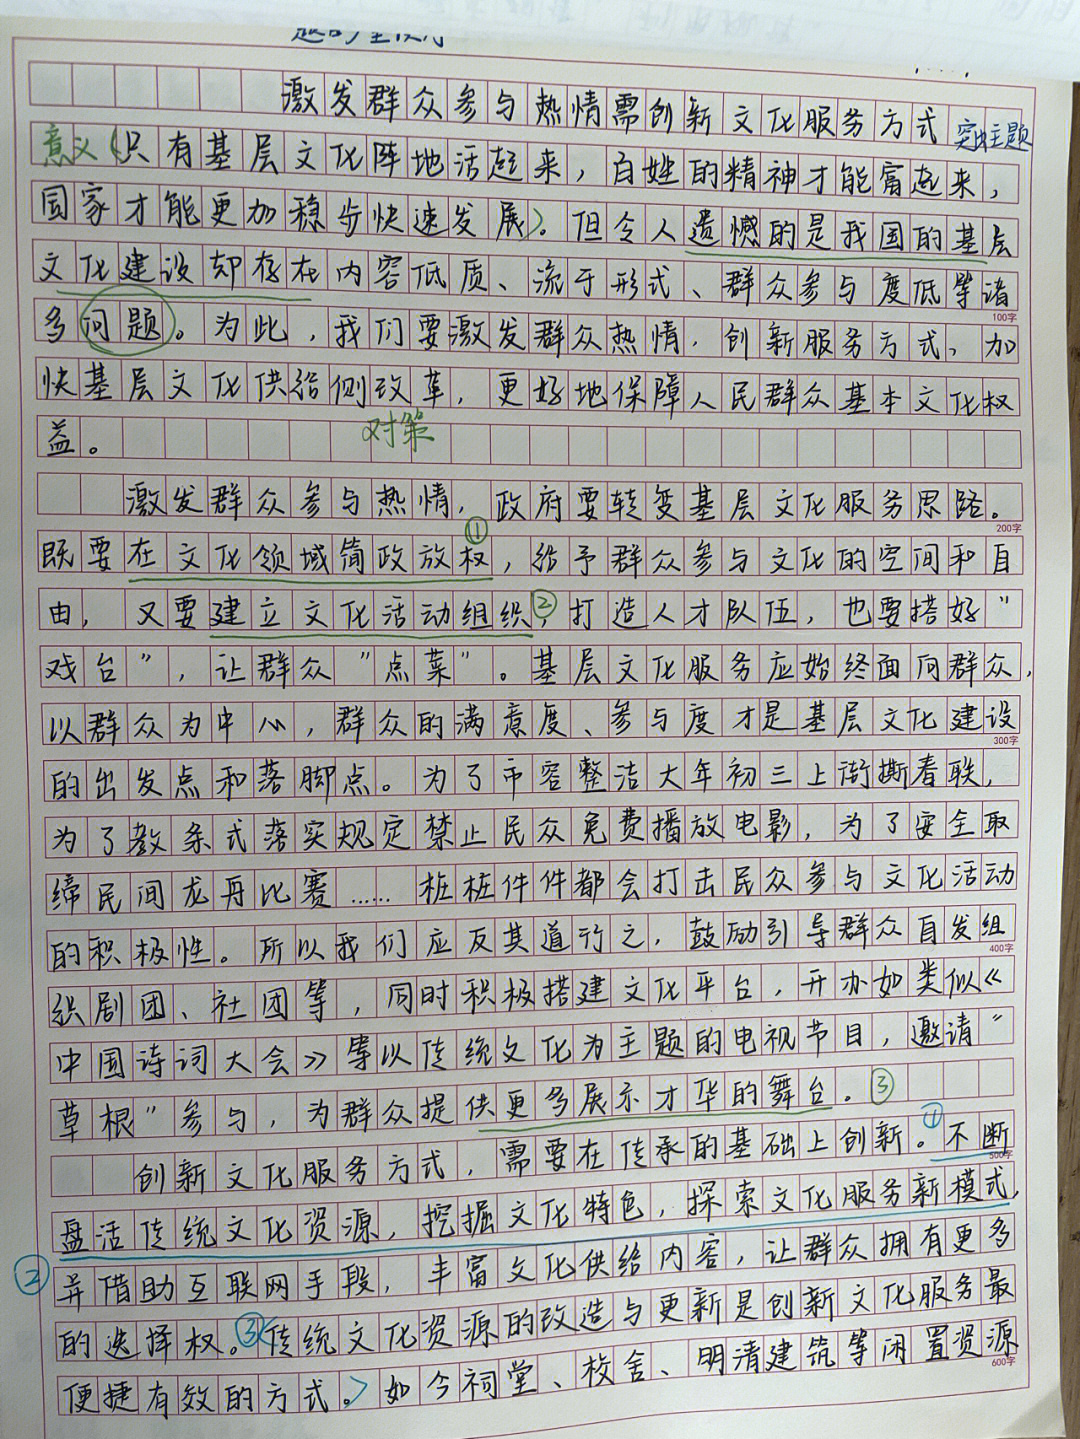 激发群众参与热情需创新文化服务方式 突出主题
意义(只有基层文化阵地活起来，百姓的精神才能富起来，
国家才能更加稳步快速发展)。但令人遗憾的是我国的基层
文化建设却存在内容低质、流于形式、群众参与度低等诸
100字
多问题。为此，我们要激发群众热情，创新服务方式，加
快基层文化供给侧改革，更好地保障人民群众基本文化权
益。 对策
激发群众参与热情，政府要转变基层文化服务思路。
200字
既要在文化领域简政放权①，给予群众参与文化的空间和自
由，又要建立文化活动组织②，打造人才队伍，也要搭好“
戏台”，让群众“点菜”。基层文化服务应始终面向群众，
以群众为中心，群众的满意度、参与度才是基层文化建设
300字
的出发点和落脚点。为了市容整洁大年初三上街撕春联，
为了教条式落实规定禁止民众免费播放电影，为了安全取
缔民间龙舟比赛……桩桩件件都会打击民众参与文化活动
的积极性。所以我们应反其道行之，鼓励引导群众自发组
400字
织剧团、社团等，同时积极搭建文化平台，开办如类似《
中国诗词大会》等以传统文化为主题的电视节目，邀请“
草根”参与，为群众提供更多展示才华的舞台。③
创新文化服务方式，需要在传承的基础上创新。①不断
500字
盘活传统文化资源，挖掘文化特色，探索文化服务新模式，
②并借助互联网手段，丰富文化供给内容，让群众拥有更多
的选择权。③<传统文化资源的改造与更新是创新文化服务最
便捷有效的方式。>如今祠堂、校舍、明清建筑等闲置资源
600字